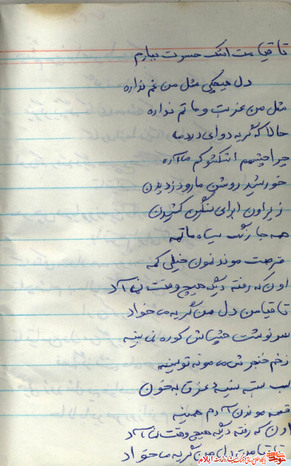 تا قیامت اشک حسرت ببارم
دل هیچکی مثل من غم نداره
مثل من غربت و ماتم نداره
حالا که گریه دوای دردمه
چرا چشمم اشکشو کم میاره
خورشید روشن ما رو دزدیدن
زیر اون ابرای سنگین کشیدن
همه جا رنگ سیاه ماتمه
فرصت موندنمون خیلی کمه
اون که رفته دیگه هیچ وقت نمی آد
تا قیامت دل من گریه می خواد
سرنوشت چشماش کوره نمی بینه
زخم خنجرش می مونه تو سینه
لب بسته سینه غرق به خون
قصه موندن آدم همینه
اون که رفته دیگه هیچ وقت نمی آد
تا قیامت دل من گریه می خواد